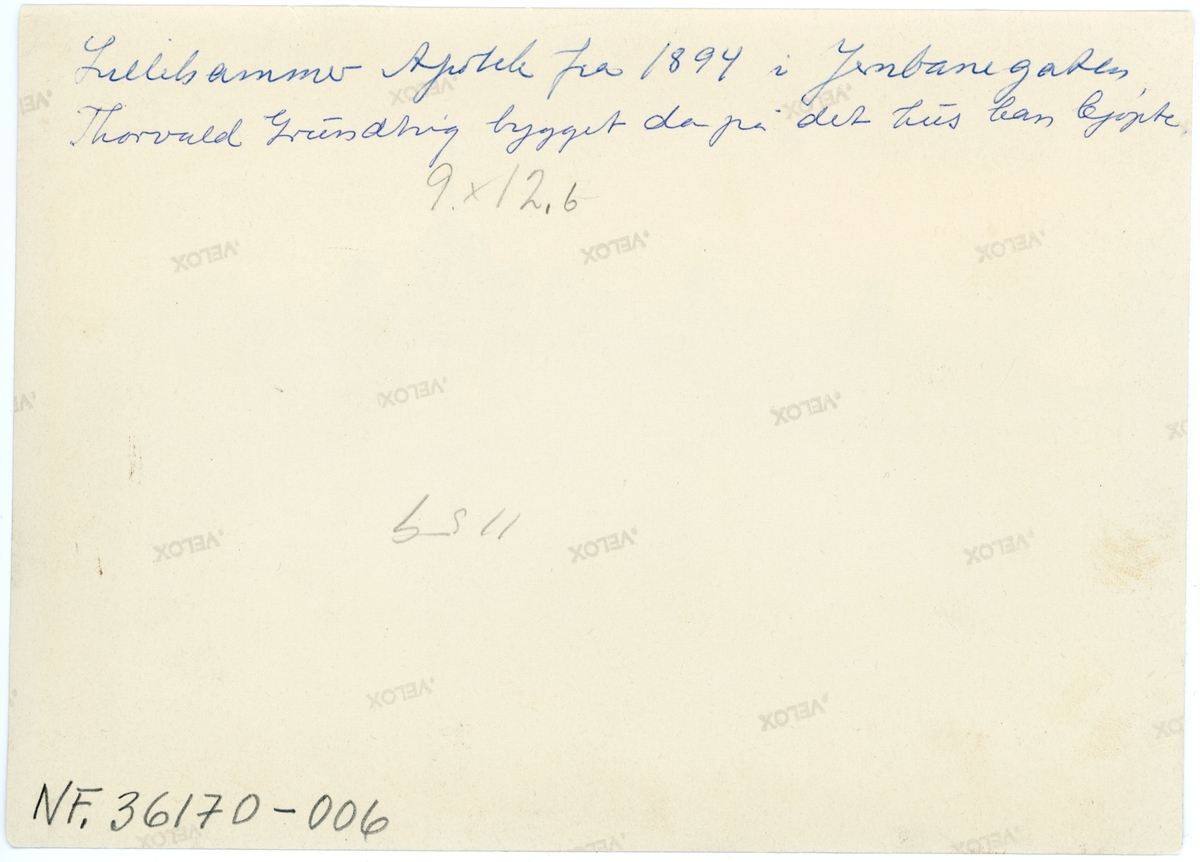 Lillehammer Apotek fra 1894 i Jernbanegaten
Thorvald Grundtvig bygget da på det hus han kjøpte.
9.x12,6
NF. 36170-006
VELOX
VELOX
VELOX
VELOX
VELOX
VELOX
VELOX
VELOX
VELOX
VELOX